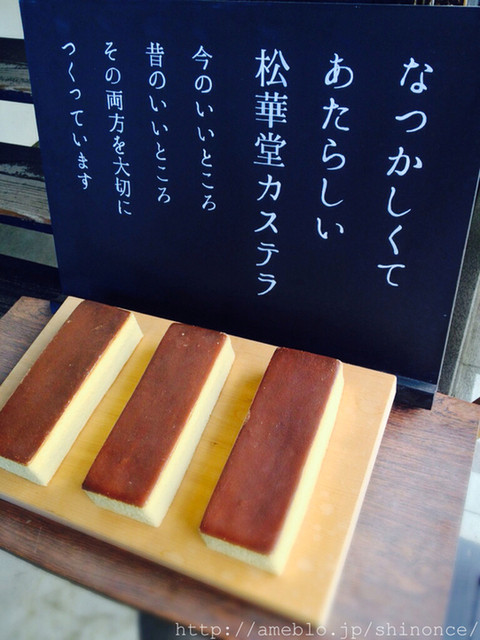 なつかしくて
あたらしい
松華堂カステラ
今のいいところ
昔のいいところ
その両方を大切に
つくっています
http://ameblo.jp/shinonce/